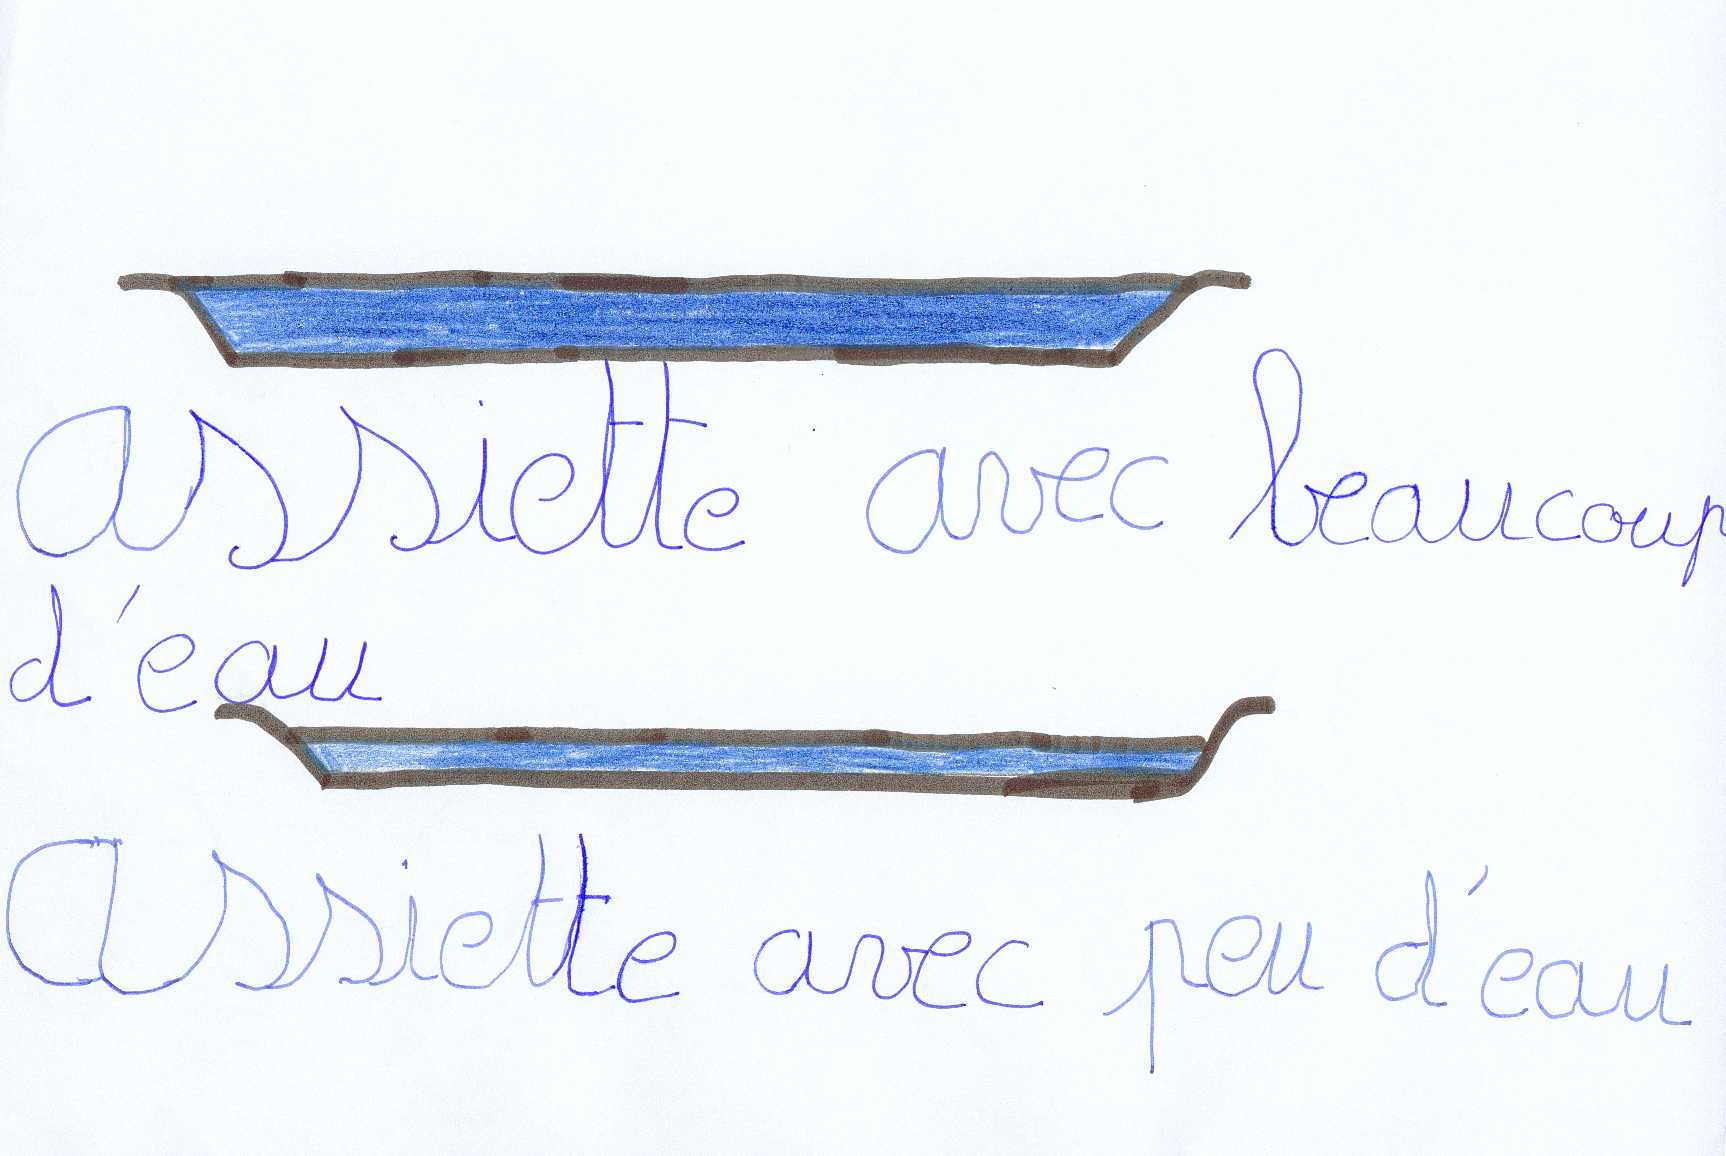 assiette avec beaucoup
d'eau
assiette avec peu d'eau